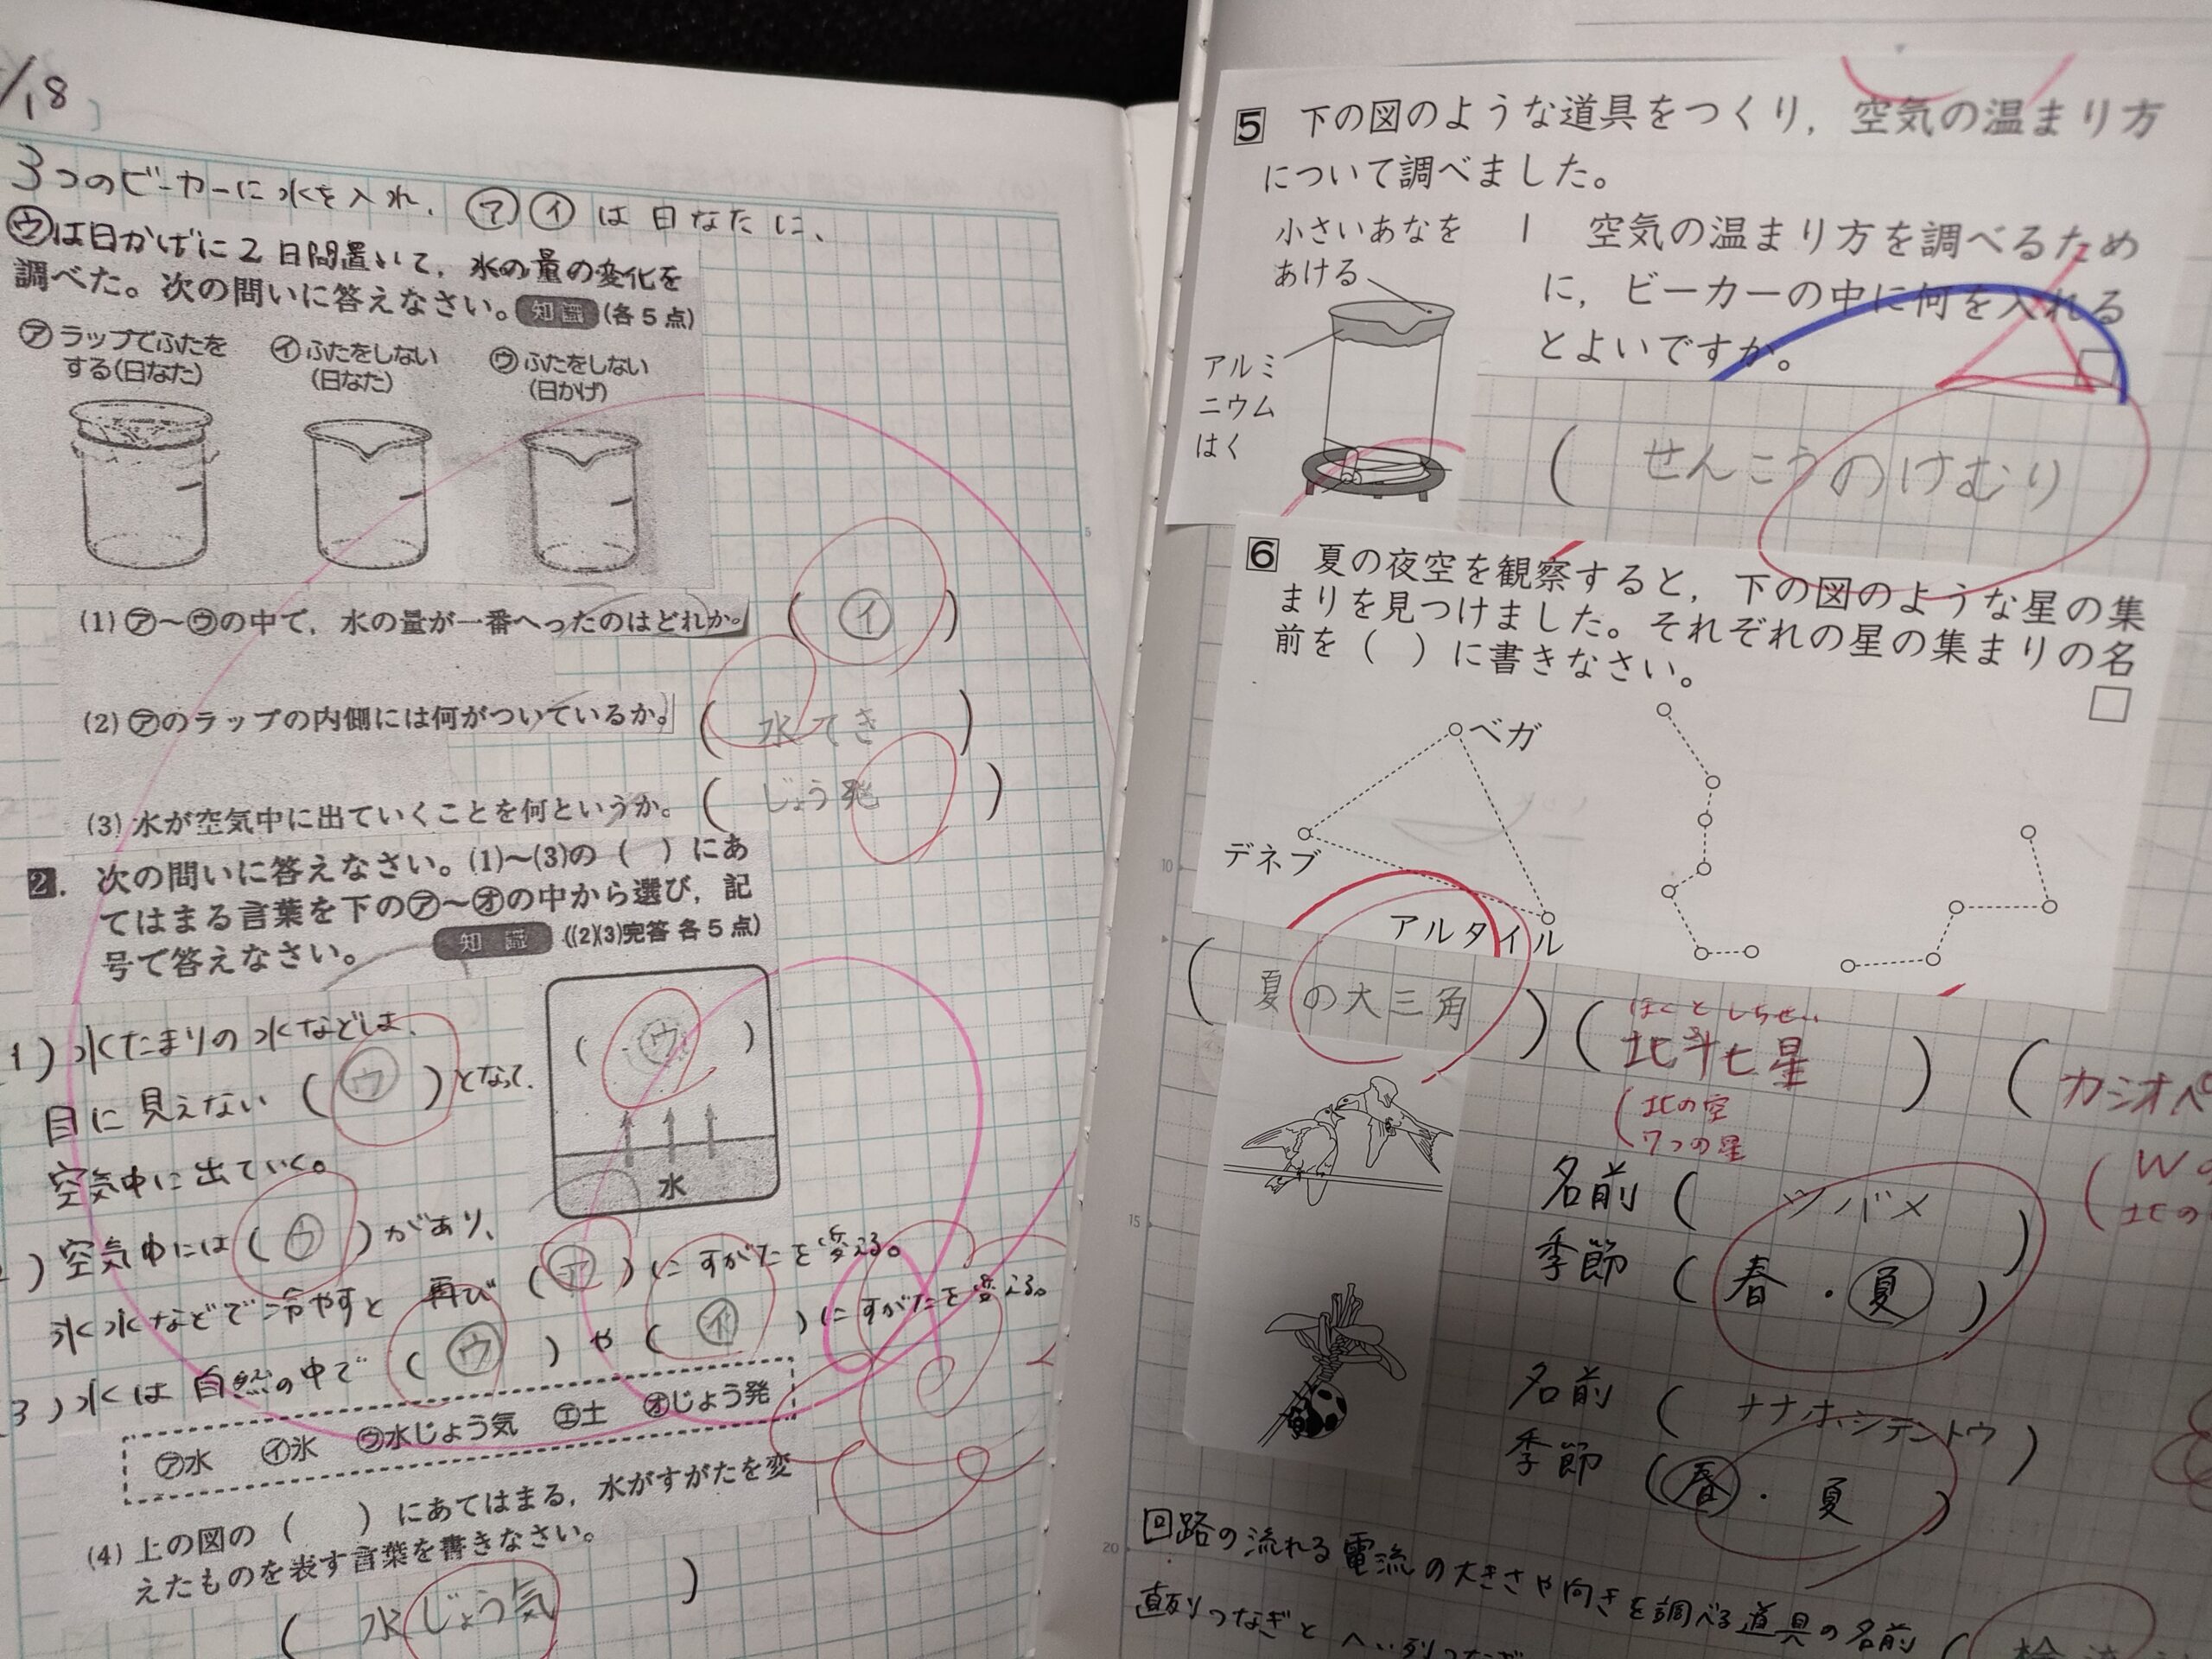 /18
3つのビーカーに水を入れ、㋐㋑は日なたに、
㋒は日かげに2日間置いて、水の量の変化を
調べた。次の問いに答えなさい。知識(各5点)
㋐ラップでふたを
する(日なた)
㋑ふたをしない
(日なた)
㋒ふたをしない
(日かげ)
(1)㋐～㋒の中で，水の量が一番へったのはどれか。
( ㋑ )
(2)㋐のラップの内側には何がついているか。
( 水てき )
(3)水が空気中に出ていくことを何というか。
( じょう発 )
2. 次の問いに答えなさい。(1)～(3)の( )にあ
てはまる言葉を下の㋐～㋔の中から選び，記
号で答えなさい。 知識 ((2)(3)完答 各5点)
1)水たまりの水などは、
目に見えない(㋒)となって、
空気中に出ていく。
( ㋒ )
水
)空気中には(㋒)があり、
氷水などで冷やすと 再び(㋐)にすがたを変える。
3)水は自然の中で(㋒)や(㋑)にすがたを変える。
㋐水 ㋑氷 ㋒水じょう気 ㋓土 ㋔じょう発
(4)上の図の( )にあてはまる，水がすがたを変
えたものを表す言葉を書きなさい。
( 水じょう気 )
5 下の図のような道具をつくり，空気の温まり方
について調べました。
小さいあなを
あける
アルミ
ニウム
はく
1 空気の温まり方を調べるため
に，ビーカーの中に何を入れる
とよいですか。
( せんこうのけむり )
6 夏の夜空を観察すると，下の図のような星の集
まりを見つけました。それぞれの星の集まりの名
前を( )に書きなさい。
ベガ
デネブ
アルタイル
( 夏の大三角 )
ほくとしちせい
( 北斗七星 )
(北の空
7つの星
(カシオペ
(W
北の
名前( ツバメ )
季節(春・夏)
名前( ナナホシテントウ )
季節(春・夏)
回路の流れる電流の大きさや向きを調べる道具の名前(
直列つなぎとへい列つなぎ
5
10
15
20